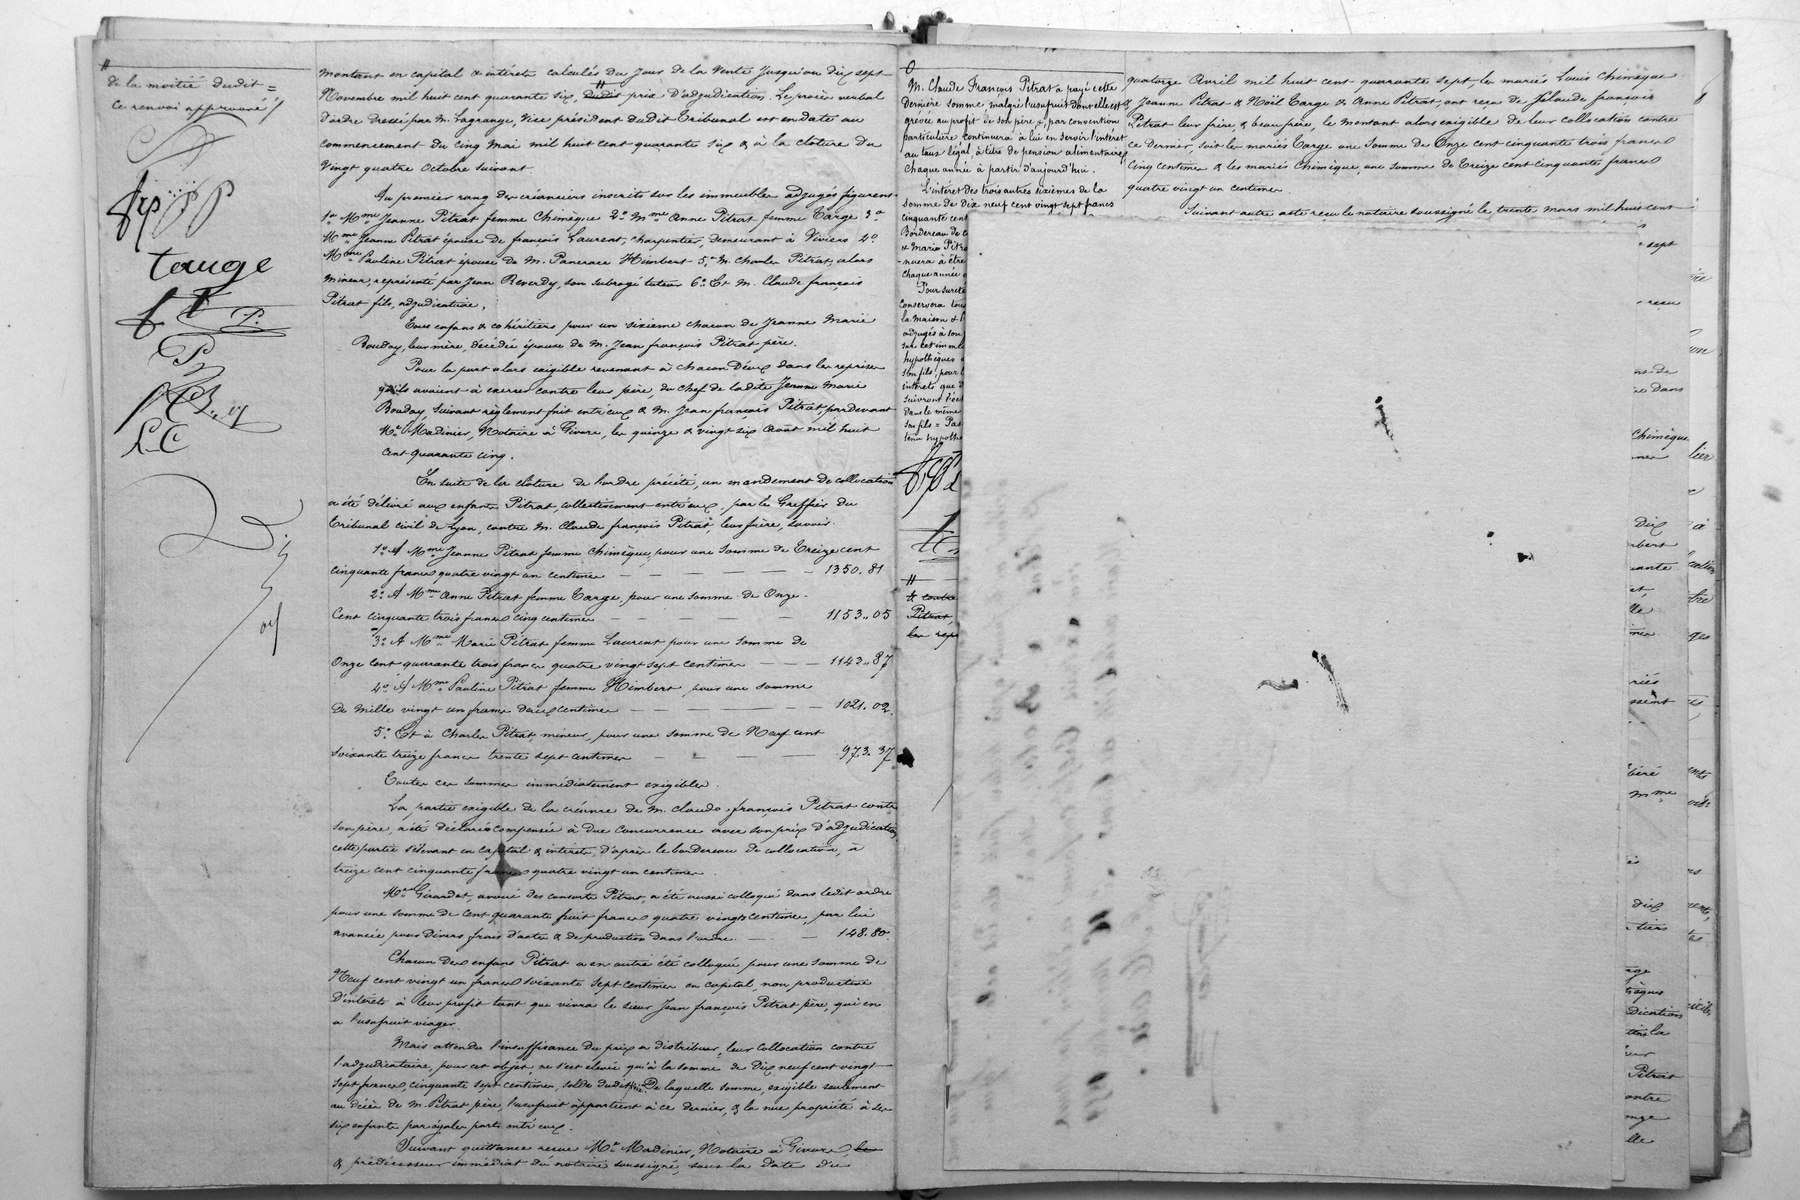 de la moitié dudit =
Ce renvoi approuvé /
Tauge
montant en capital & intérêts calculés du jour de la vente jusqu'au dix sept
Novembre mil huit cent quarante six, dudit prix d'adjudication. Le procès verbal
d'ordre dressé par M. Lagrange, Vice président dudit Tribunal est en date au
commencement du cinq mai mil huit cent quarante six & à la clôture du
Vingt quatre Octobre suivant.
Au premier rang des créanciers inscrits sur les immeubles adjugés figurent
1o Mme Jeanne Pitrat femme Chimèque 2o Mme Anne Pitrat femme Targe 3o
Mme Jeanne Pitrat épouse de françois Laurent, charpentier, demeurant à Viviers 4o
Mme Pauline Pitrat épouse de M. Pancrace Himbert 5o M. Charles Pitrat, alors
mineur, représenté par Jean Reverdy, son subrogé tuteur 6o Et M. Claude françois
Pitrat fils, adjudicataire,
Tous enfans & cohéritiers pour un sixième chacun de Jeanne Marie
Bouday, leur mère, décédée épouse de M. Jean françois Pitrat père.
Pour la part alors exigible revenant à chacun d'eux dans les reprises
qu'ils avaient à exercer contre leur père, du chef de ladite Jeanne Marie
Bouday, suivant règlement fait entr'eux & M. Jean françois Pitrat, pardevant
Me Madinier, Notaire à Givors, les quinze & vingt six Août mil huit
cent quarante cinq.
En suite de la clôture de l'ordre précité, un mandement de collocation
a été délivré aux enfants Pitrat, collectivement entr'eux, par le Greffier du
Tribunal civil de Lyon, contre M. Claude françois Pitrat, leur frère, savoir:
1o A Mme Jeanne Pitrat femme Chimèque, pour une somme de Treize cent
cinquante francs quatre vingt un centimes — — — — — 1350.81
2o A Mme Anne Pitrat femme Targe, pour une somme de Onze
Cent cinquante trois francs cinq centimes — — — — — 1153..05
3o A Mme Marie Pitrat femme Laurent pour une somme de
Onze cent quarante trois francs quatre vingt sept centimes — — — 1143..87
4o A Mme Pauline Pitrat femme Himbert, pour une somme
de mille vingt un francs deux centimes — — — — — 1021.02.
5o Et à Charles Pitrat mineur, pour une somme de Neuf cent
soixante treize francs trente sept centimes — — — — 973.37
Toutes ces sommes immédiatement exigibles.
La partie exigible de la créance de M. Claude françois Pitrat contre
son père, a été déclarée compensée à due concurrence avec son prix d'adjudication,
cette partie s'élevant en capital & intérêts, d'après le bordereau de collocation, à
treize cent cinquante francs quatre vingt un centimes.
Me Girardet, avoué des consorts Pitrat, a été aussi colloqué dans ledit ordre
pour une somme de cent quarante huit francs quatre vingts centimes, par lui
avancée pour divers frais d'actes & de production dans l'ordre — — 148.80.
Chacun des enfans Pitrat a en outre été colloqué pour une somme de
Neuf cent vingt un francs soixante sept centimes en capital, non productive
d'intérêts à leur profit tant que vivra le sieur Jean françois Pitrat père, qui en
a l'usufruit viager.
Mais attendu l'insuffisance du prix à distribuer, leur collocation contre
l'adjudicataire, pour cet objet, ne s'est élevée qu'à la somme de Dix neuf cent vingt
sept francs, cinquante sept centimes, solde dudit prix. De laquelle somme, exigible seulement
au décès de M. Pitrat père, l'usufruit appartient à ce dernier, & la nue propriété à ses
six enfants par égales parts entr'eux.
Suivant quittance reçue Me Madinier, Notaire à Givors, les
& prédécesseur immédiat du notaire soussigné, sous la date du
M. Claude François Pitrat a payé cette
Dernière somme malgré l'usufruit dont elle est
grevée au profit de son père &, par convention
particulière continuera à lui en servir l'intérêt
au taux légal à titre de pension alimentaire
chaque année à partir d'aujourd'hui.
L'intérêt des trois autres sixièmes de la
somme de dix neuf cent vingt sept francs
cinquante cent
Bordereau de c
& Marie Pitra
nuera à être
chaque année
Pour sureté
conservera tous
la maison & l'
adjugés à son
sur cet imme
hypothèques
son fils, pour l
intérêts que d
suivront l'éc
dans le même
son fils = Pa
tenu hypothé
& contre
Pitrat,
les repr
quatorze Avril mil huit cent quarante sept, les mariés Louis Chimèque
& Jeanne Pitrat & Noël Targe & Anne Pitrat, ont reçu de Claude françois
Pitrat leur frère, & beau frère, le montant alors exigible de leur collocation contre
ce dernier, soit les mariés Targe une somme de Onze cent cinquante trois francs
cinq centimes & les mariés Chimèque, une somme de Treize cent cinquante francs
quatre vingt un centimes.
Suivant autre acte reçu le notaire soussigné le trente mars mil huit cent
sept
reçu
nt de
dans
Chimèque
Dix
mbert
uante
Mme
dix
tiers
dication
Pitrat
ontre
onze